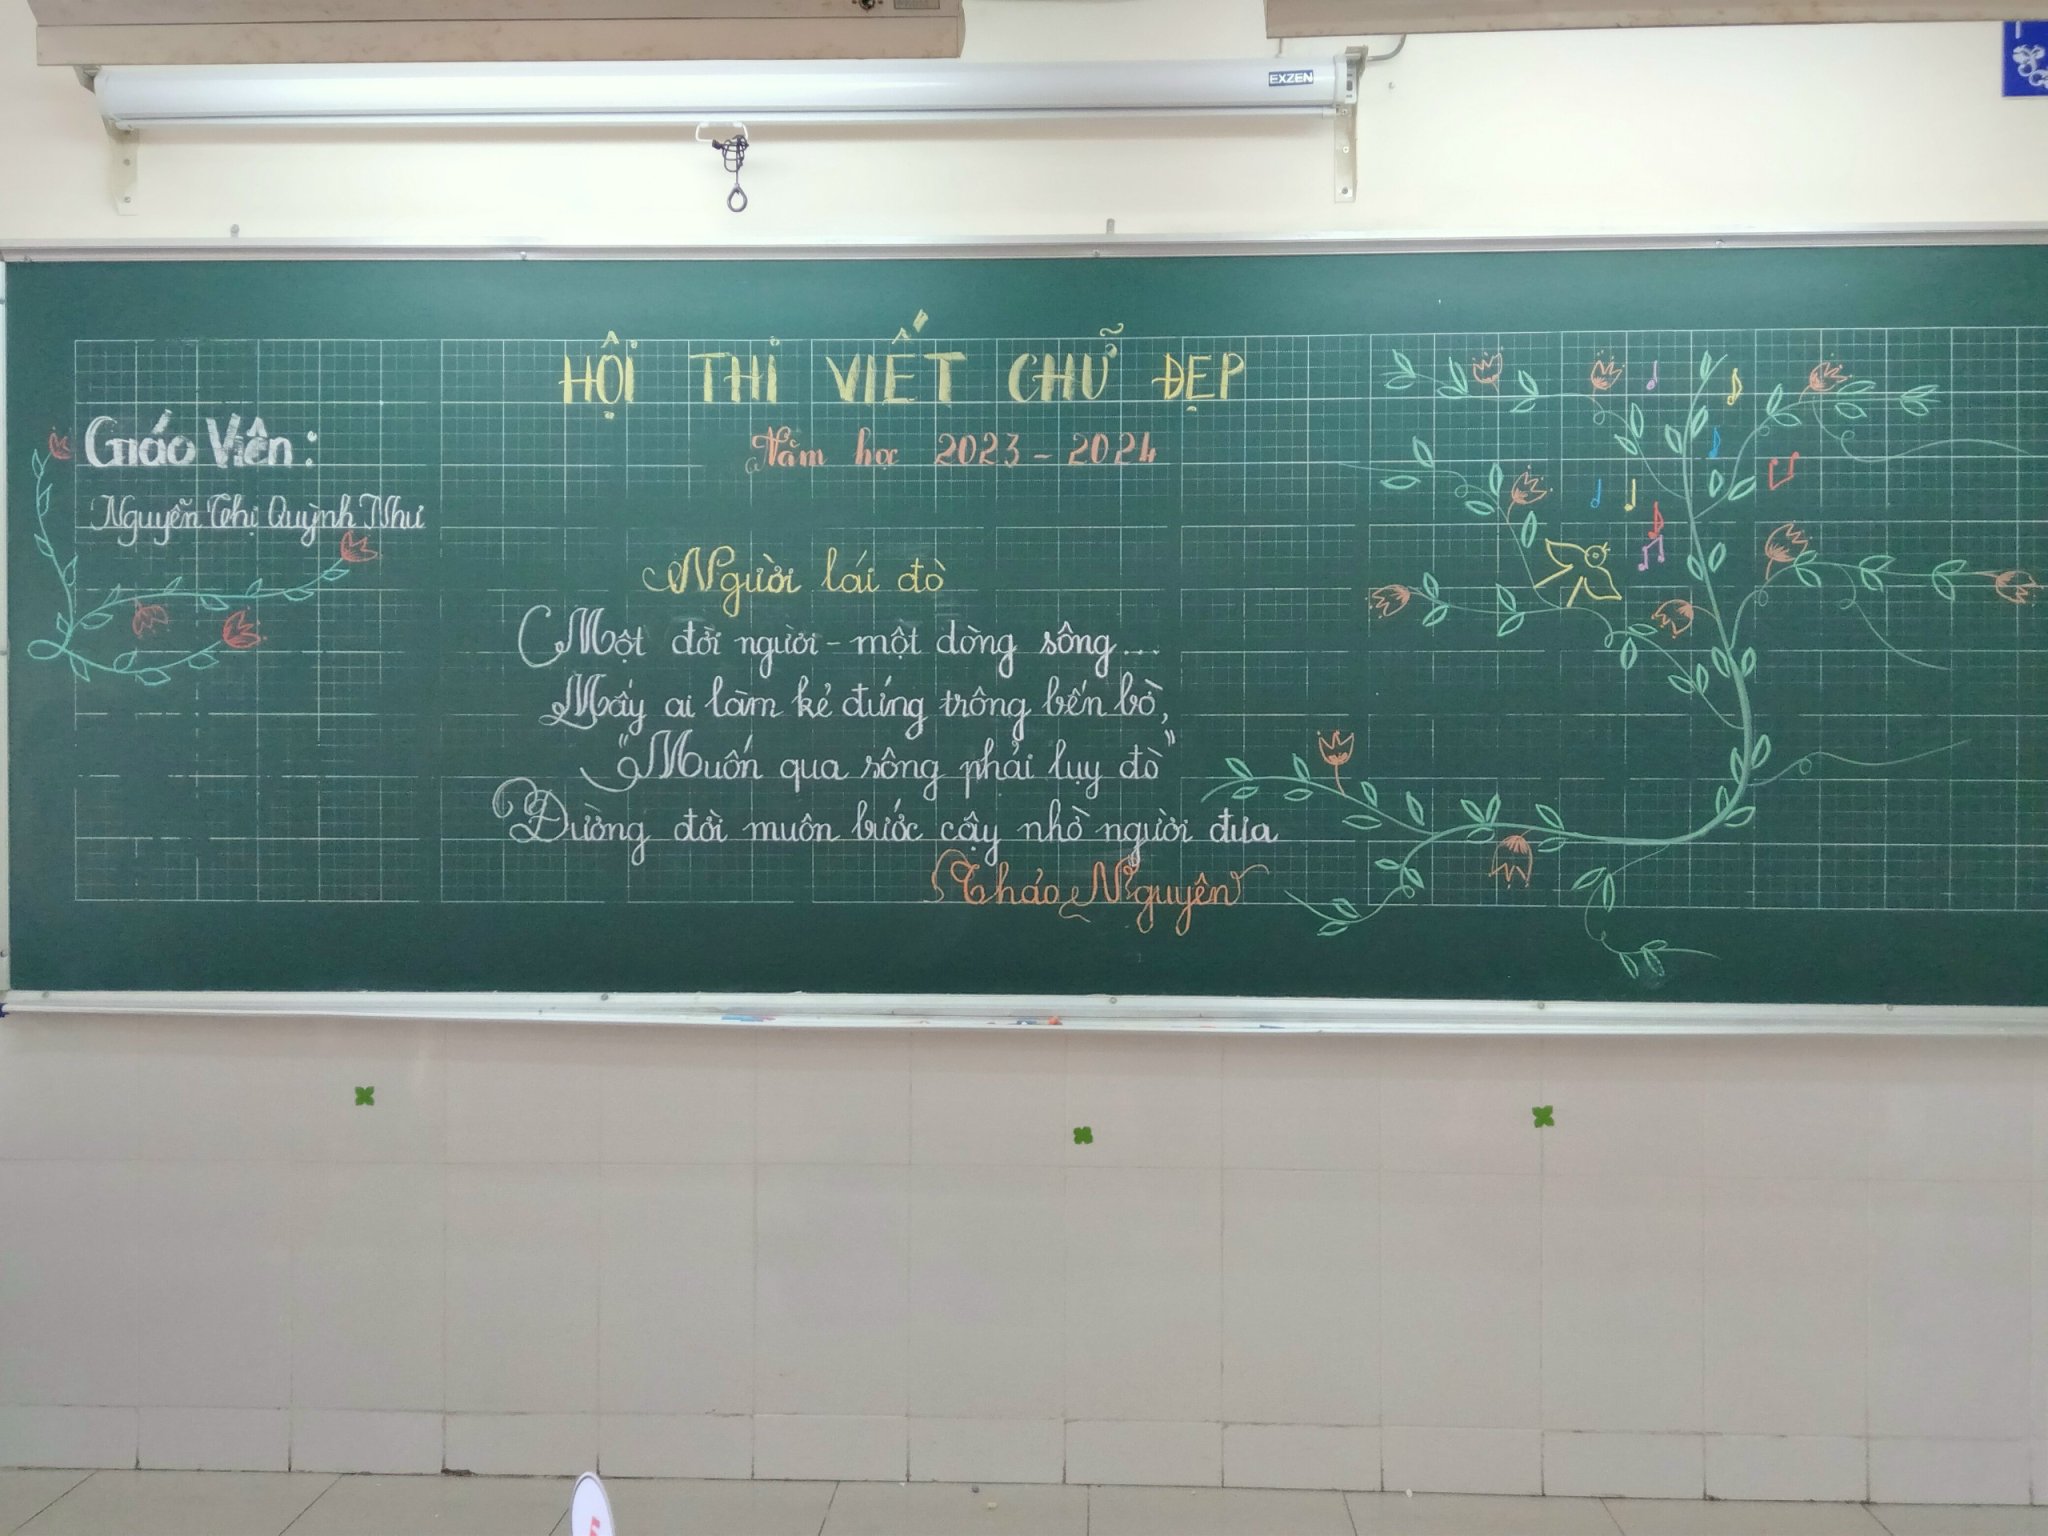 EXZEN
HỘI THI VIẾT CHỮ ĐẸP
Năm học 2023 - 2024
Giáo Viên:
Nguyễn Thị Quỳnh Như
Người lái đò
Một đời người - một dòng sông...
Mấy ai làm kẻ đứng trông bến bờ,
"Muốn qua sông phải lụy đò"
Đường đời muôn bước cậy nhờ người đưa
Thảo Nguyên